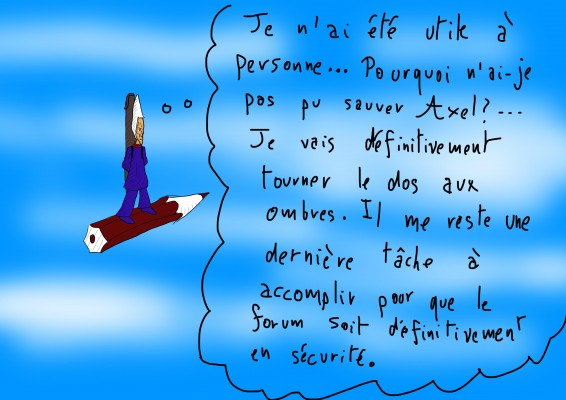 Je n'ai été utile à
personne... Pourquoi n'ai-je
pas pu sauver Axel?...
Je vais définitivement
tourner le dos aux
ombres. Il me reste une
dernière tâche à
accomplir pour que le
forum soit définitivement
en sécurité.